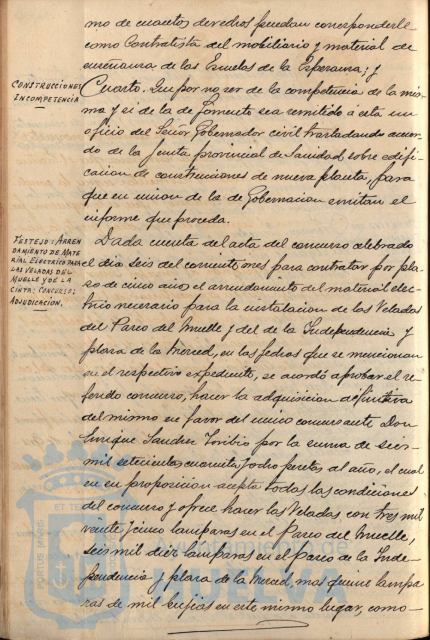 mo de cuantos derechos puedan corresponderle
como Contratista del mobiliario y material de
enseñanza de las Escuelas de la Esperanza; y
CONSTRUCCIONES
INCOMPETENCIA
Cuarto. Que por no ser de la competencia de la mis-
ma y si de la de Fomento sea remitido á esta un
oficio del Señor Gobernador civil trasladando acuer-
do de la Junta provincial de Sanidad sobre edifi-
cacion de construcciones de nueva planta, para
que en union de la de Gobernacion emitan el
informe que proceda.
FESTEJO: ARREN
DAMIENTO DE MATE
RIAL ELECTRICO PARA
LAS VELADAS DEL
MUELLE Y DE LA
CINTA: CONCURSO:
ADJUDICACION.
Dada cuenta del acta del concurso celebrado
el dia seis del corriente mes para contratar por pla-
zo de cinco años el arrendamiento del material eléc-
trico necesario para la instalacion de las Veladas
del Paseo del Muelle y del de la Independencia y
plaza de la Merced, en las fechas que se mencionan
en el respectivo expediente, se acordó aprobar el re-
ferido concurso, hacer la adquisicion definitiva
del mismo en favor del unico concursante Don
Enrique Sanchez Toribio por la suma de seis
mil setecientas cuarenta y ocho pesetas al año, el cual
en su proposicion acepta todas las condiciones
del concurso y ofrece hacer las Veladas con tres mil
veinte y cinco lamparas en el Paseo del Muelle,
seis mil diez lamparas en el Paseo de la Inde-
pendencia y plaza de la Merced, mas quince lampa-
ras de mil bujias en este mismo lugar, como
PORTUS MARIS
ET TE
HUELVA